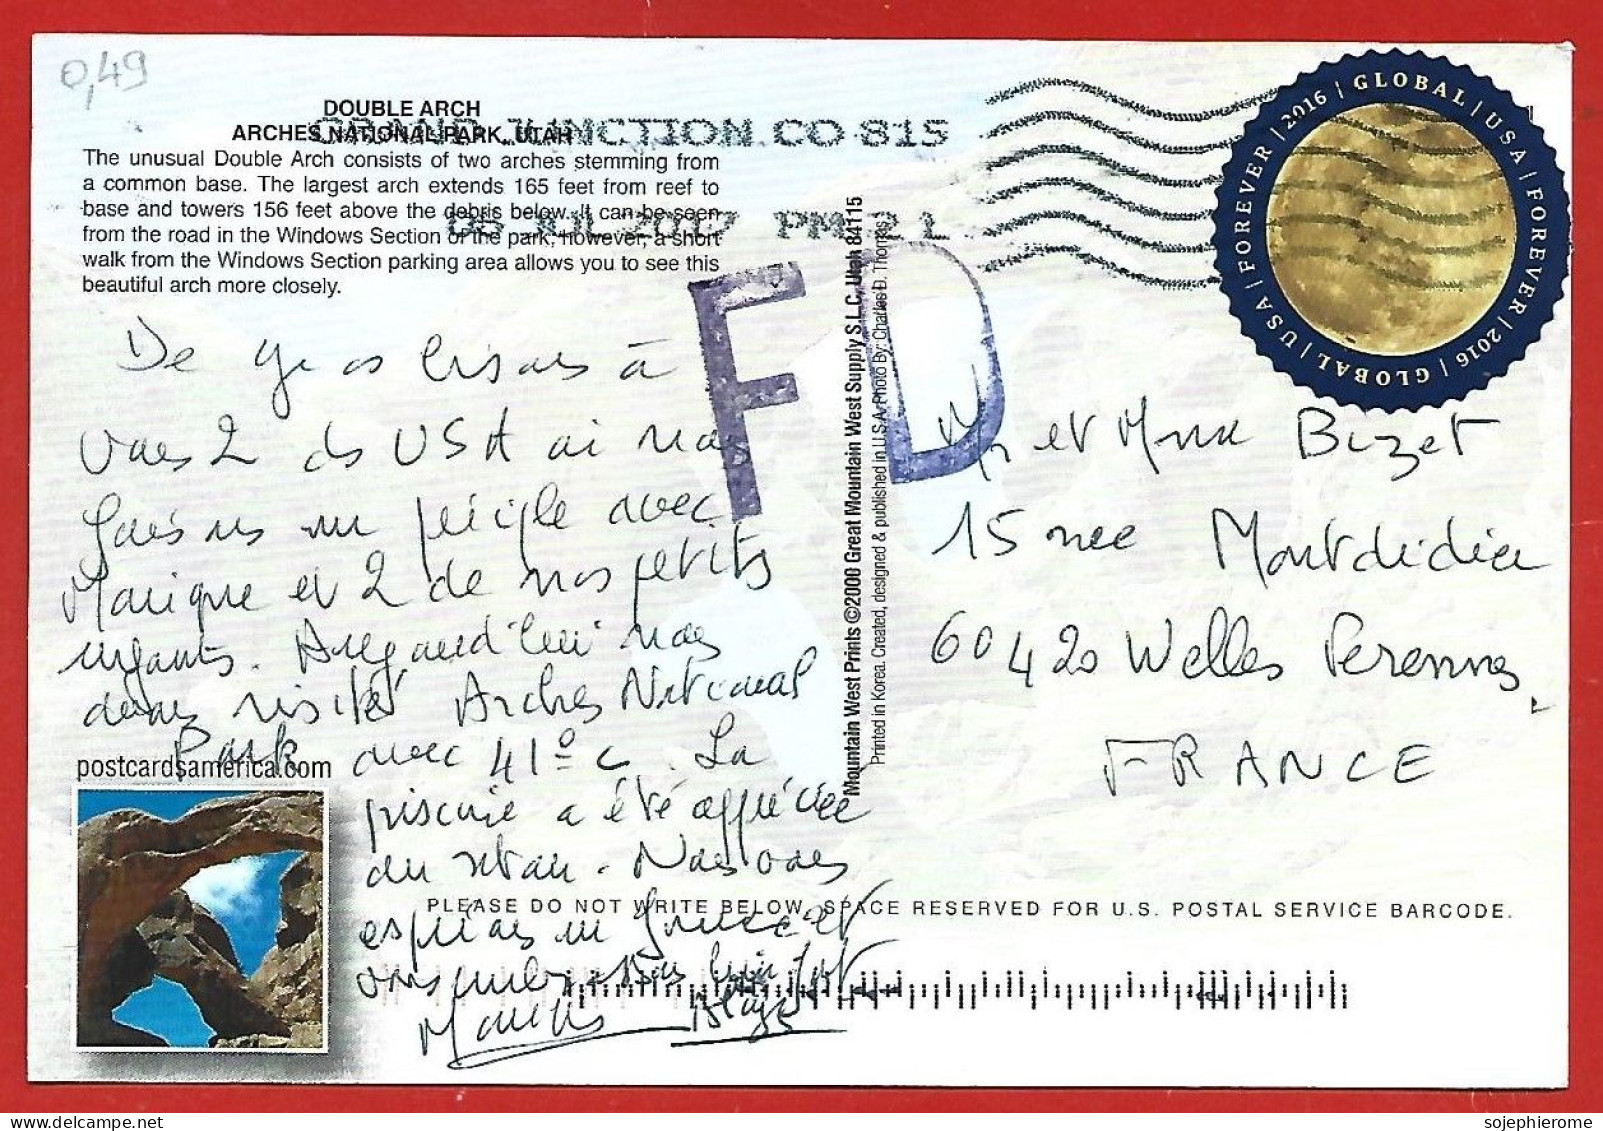 0,49
DOUBLE ARCH
ARCHES NATIONAL PARK, UTAH
The unusual Double Arch consists of two arches stemming from
a common base. The largest arch extends 165 feet from reef to
base and towers 156 feet above the debris below. It can be seen
from the road in the Windows Section of the park, however, a short
walk from the Windows Section parking area allows you to see this
beautiful arch more closely.
GRAND JUNCTION CO 815
05 JUL 2017 PM 2 L
GLOBAL | USA | FOREVER | 2016 | GLOBAL | USA | FOREVER | 2016
FD
De gros bisous à
vous 2 des USA où nous
un périple avec
et 2 de nos petits
enfants. Aujourd'hui nous
avons visité Arches National
Park avec 41° c. La
piscine a été appréciée
au retour. Nous vous
espérons en forme et
postcardsamerica.com
Mountain West Prints ©2000 Great Mountain West Supply S.L.C. Utah 84115
Printed in Korea. Created, designed & published in U.S.A. Photo By: Charles D. Thomas
Mr et Mme Bizet
15 rue Montdidier
60420 Welles Perennes
FRANCE
PLEASE DO NOT WRITE BELOW. SPACE RESERVED FOR U.S. POSTAL SERVICE BARCODE.
sojephierome